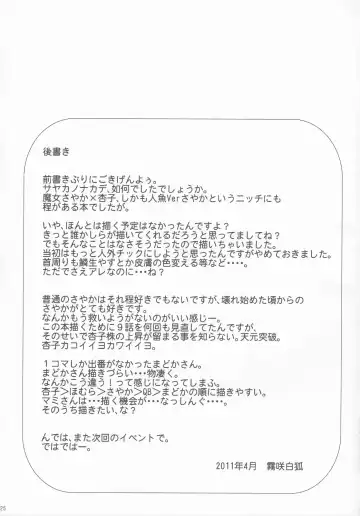 後書き
前書きぶりにごきげんよぅ。
サヤカノナカデ、如何でしたでしょうか。
魔女さやか×杏子、しかも人魚Verさやかというニッチにも
程がある本でしたが。
いや、ほんとは描く予定はなかったんですよ？
きっと誰かしらが描いてくれるだろうと思ってましてね？
でもそんなことはなさそうだったので描いちゃいました。
当初はもっと人外チックにしようと思ったんですがやめておきました。
首周りも鱗生やすとか皮膚の色変える等など・・・・。
ただでさえアレなのに・・・ね？
普通のさやかはそれ程好きでもないですが、壊れ始めた頃からの
さやかが好きです。
なんかもう救いようがないのがいい感じー。
この本描くために９話を何回も見直してたんですが、
そのせいで杏子株の上昇が留まる事を知らない。天元突破。
杏子カコイイヨカワイイヨ。
１コマしか出番がなかったまどかさん。
まどかさん描きづらい・・・物凄く。
なんかこう違う！って感じになってしまふ。
杏子＞ほむら＞さやか＞QB＞まどかの順に描きやすい。
マミさんは・・・描く機会が・・・なっしんぐ・・・・。
そのうち描きたい、な？
んでは、また次回のイベントで。
ではではー。
2011年4月　霧咲白狐
25